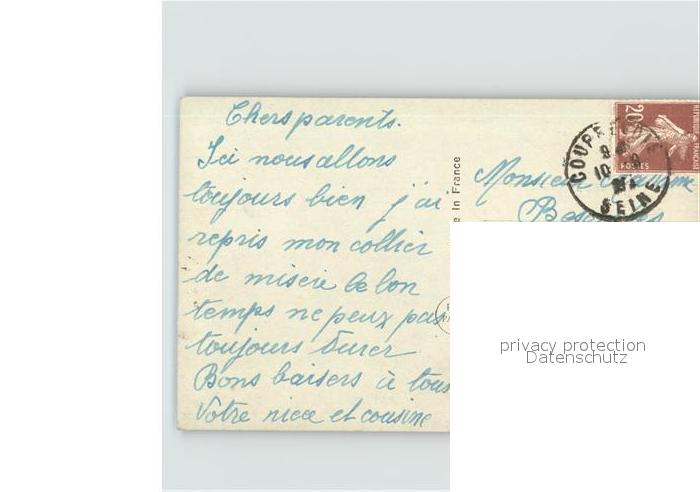 Chers parents.
Ici nous allons
toujours bien j'ai
repris mon collier
de misère le bon
temps ne peux pas
toujours durer
Bons baisers à tous
Votre niece et cousine
e In France
Monsieur
20
POSTES
SEINE
privacy protection
Datenschutz